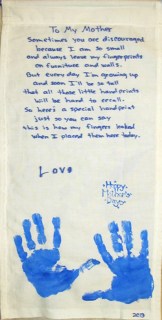 To My Mother
Sometimes you are discouraged
because I am so small
and always leave my fingerprints
on furniture and walls.
But every day I'm growing up
and soon I'll be so tall
that all those little handprints
will be hard to recall.
So here's a special handprint
just so you can say
this is how my fingers looked
when I placed them here today.
Love
Happy
Mother's
Day